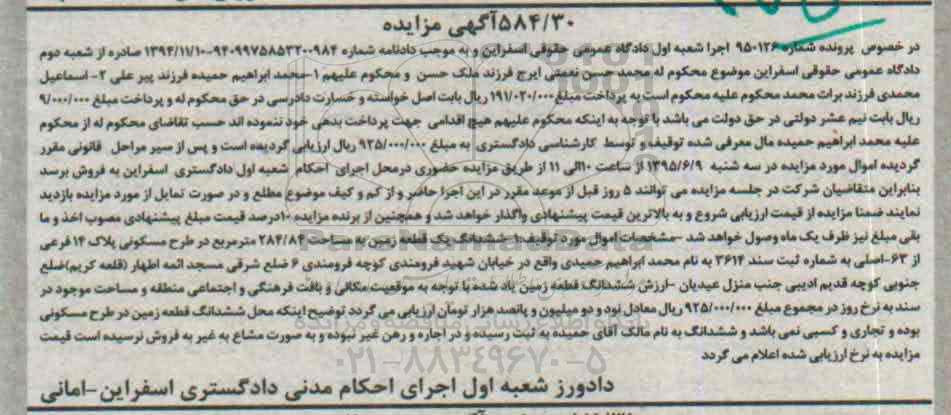 ۵۸۴/۳۰آگهی مزایده
در خصوص پرونده شماره ۹۵۰۱۲۶ اجرا شعبه اول دادگاه عمومی حقوقی اسفراین و به موجب دادنامه شماره ۹۴۰۹۹۷۵۸۵۳۲۰۰۹۸۴-۱۳۹۴/۱۱/۱۰ صادره از شعبه دوم
دادگاه عمومی حقوقی اسفراین موضوع محکوم له محمد حسن نعمتی ایرج فرزند ملک حسن و محکوم علیهم ۱-محمد ابراهیم حمیده فرزند پیر علی ۲- اسماعیل
محمدی فرزند برات محمد محکوم علیه محکوم است به پرداخت مبلغ ۱۹۱/۰۲۰/۰۰۰ ریال بابت اصل خواسته و خسارت دادرسی در حق محکوم له و پرداخت مبلغ ۹/۰۰۰/۰۰۰
ریال بابت نیم عشر دولتی در حق دولت می باشد با توجه به اینکه محکوم علیهم هیچ اقدامی جهت پرداخت بدهی خود ننموده اند حسب تقاضای محکوم له از محکوم
علیه محمد ابراهیم حمیده مال معرفی شده توقیف و توسط کارشناسی دادگستری به مبلغ ۹۲۵/۰۰۰/۰۰۰ ریال ارزیابی گردیده است و پس از سیر مراحل قانونی مقرر
گردیده اموال مورد مزایده در سه شنبه ۱۳۹۵/۶/۹ از ساعت ۱۰الی ۱۱ از طریق مزایده حضوری درمحل اجرای احکام شعبه اول دادگستری اسفراین به فروش برسد
بنابراین متقاضیان شرکت در جلسه مزایده می توانند ۵ روز قبل از موعد مقرر در این اجرا حاضر و از کم و کیف موضوع مطلع و در صورت تمایل از مورد مزایده بازدید
نمایند ضمنا مزایده از قیمت ارزیابی شروع و به بالاترین قیمت پیشنهادی واگذار خواهد شد و همچنین از برنده مزایده ۱۰درصد قیمت مبلغ پیشنهادی مصوب اخذ و ما
بقی مبلغ نیز ظرف یک ماه وصول خواهد شد -مشخصات اموال مورد توقیف ۱- ششدانگ یک قطعه زمین به مساحت ۲۸۴/۸۴ مترمربع در طرح مسکونی پلاک ۱۴ فرعی
از ۶۳-اصلی به شماره ثبت سند ۳۶۱۴ به نام محمد ابراهیم حمیدی واقع در خیابان شهید فرومندی کوچه فرومندی ۶ ضلع شرقی مسجد ائمه اطهار (قلعه کریم)ضلع
جنوبی کوچه قدیم ادیبی جنب منزل عیدیان -ارزش ششدانگ قطعه زمین یاد شده با توجه به موقعیت مکانی و بافت فرهنگی و اجتماعی منطقه و مساحت موجود در
سند به نرخ روز در مجموع مبلغ ۹۲۵/۰۰۰/۰۰۰ ریال معادل نود و دو میلیون و پانصد هزار تومان ارزیابی می گردد توضیح اینکه محل ششدانگ قطعه زمین در طرح مسکونی
بوده و تجاری و کسبی نمی باشد و ششدانگ به نام مالک آقای حمیده به ثبت رسیده و در اجاره و رهن غیر نبوده و به صورت مشاع به غیر به فروش نرسیده است قیمت
مزایده به نرخ ارزیابی شده اعلام می گردد
۰۲۱-۸۸۳۴۹۶۷۰-۵
دادورز شعبه اول اجرای احکام مدنی دادگستری اسفراین-امانی